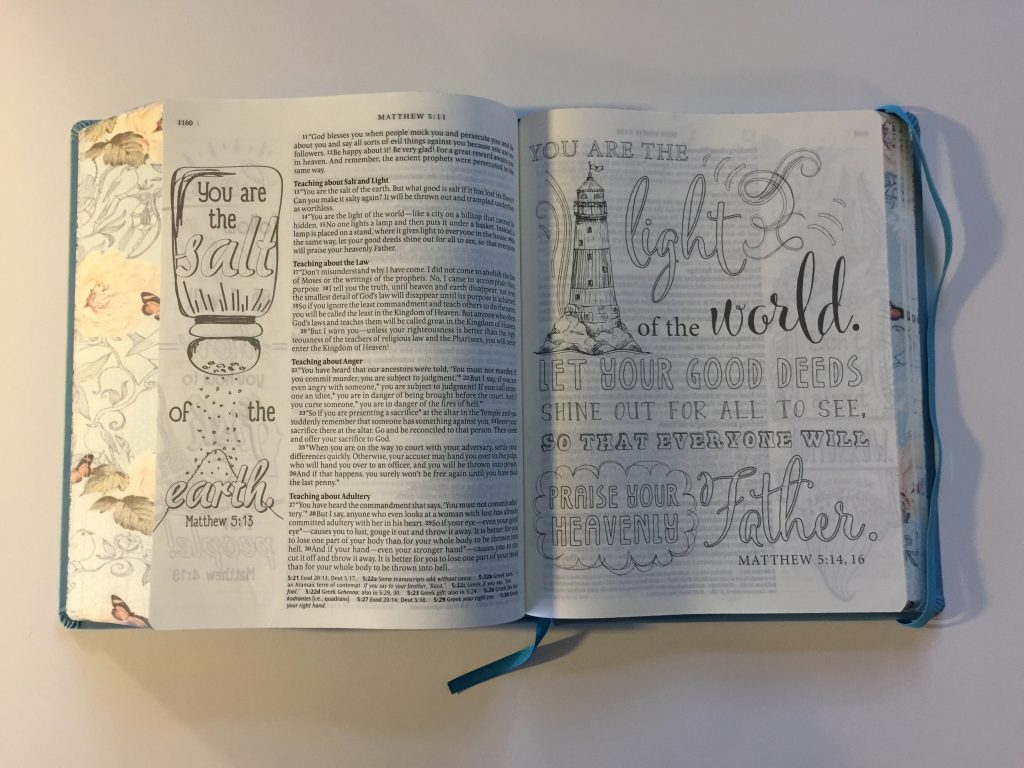 1160
MATTHEW 5:11
You are
the
salt
of the
earth.
Matthew 5:13
11 "God blesses you when people mock you and persecute you and lie
about you and say all sorts of evil things against you because you are my
followers. 12 Be happy about it! Be very glad! For a great reward awaits you
in heaven. And remember, the ancient prophets were persecuted in the
same way.
Teaching about Salt and Light
13 "You are the salt of the earth. But what good is salt if it has lost its flavor?
Can you make it salty again? It will be thrown out and trampled underfoot
as worthless.
14 "You are the light of the world—like a city on a hilltop that cannot be
hidden. 15 No one lights a lamp and then puts it under a basket. Instead, a
lamp is placed on a stand, where it gives light to everyone in the house. 16 In
the same way, let your good deeds shine out for all to see, so that everyone
will praise your heavenly Father.
Teaching about the Law
17 "Don't misunderstand why I have come. I did not come to abolish the law
of Moses or the writings of the prophets. No, I came to accomplish their
purpose. 18 I tell you the truth, until heaven and earth disappear, not even
the smallest detail of God's law will disappear until its purpose is achieved.
19 So if you ignore the least commandment and teach others to do the same,
you will be called the least in the Kingdom of Heaven. But anyone who obeys
God's laws and teaches them will be called great in the Kingdom of Heaven.
20 "But I warn you—unless your righteousness is better than the righ-
teousness of the teachers of religious law and the Pharisees, you will never
enter the Kingdom of Heaven!
Teaching about Anger
21 "You have heard that our ancestors were told, 'You must not murder. If
you commit murder, you are subject to judgment.'* 22 But I say, if you are
even angry with someone,* you are subject to judgment! If you call someone
an idiot,* you are in danger of being brought before the court. And if
you curse someone,* you are in danger of the fires of hell.*
23 "So if you are presenting a sacrifice* at the altar in the Temple and you
suddenly remember that someone has something against you, 24 leave your
sacrifice there at the altar. Go and be reconciled to that person. Then come
and offer your sacrifice to God.
25 "When you are on the way to court with your adversary, settle your
differences quickly. Otherwise, your accuser may hand you over to the judge,
who will hand you over to an officer, and you will be thrown into prison.
26 And if that happens, you surely won't be free again until you have paid
the last penny.*
Teaching about Adultery
27 "You have heard the commandment that says, 'You must not commit adul-
tery.'* 28 But I say, anyone who even looks at a woman with lust has already
committed adultery with her in his heart. 29 So if your eye—even your good
eye*—causes you to lust, gouge it out and throw it away. It is better for you
to lose one part of your body than for your whole body to be thrown into
hell. 30 And if your hand—even your stronger hand*—causes you to sin,
cut it off and throw it away. It is better for you to lose one part of your body
than for your whole body to be thrown into hell.
5:21 Exod 20:13; Deut 5:17. 5:22a Some manuscripts add without cause. 5:22b Greek uses
an Aramaic term of contempt: If you say to your brother, 'Raca.' 5:22c Greek if you say, 'You
fool.' 5:22d Greek Gehenna; also in 5:29, 30. 5:23 Greek gift; also in 5:24. 5:26 Greek the last
kodrantes [i.e., quadrans]. 5:27 Exod 20:14; Deut 5:18. 5:29 Greek your right eye. 5:30 Greek
your right hand.
YOU ARE THE
light
of the world.
LET YOUR GOOD DEEDS
SHINE OUT FOR ALL TO SEE,
SO THAT EVERYONE WILL
PRAISE YOUR
HEAVENLY Father.
MATTHEW 5:14, 16